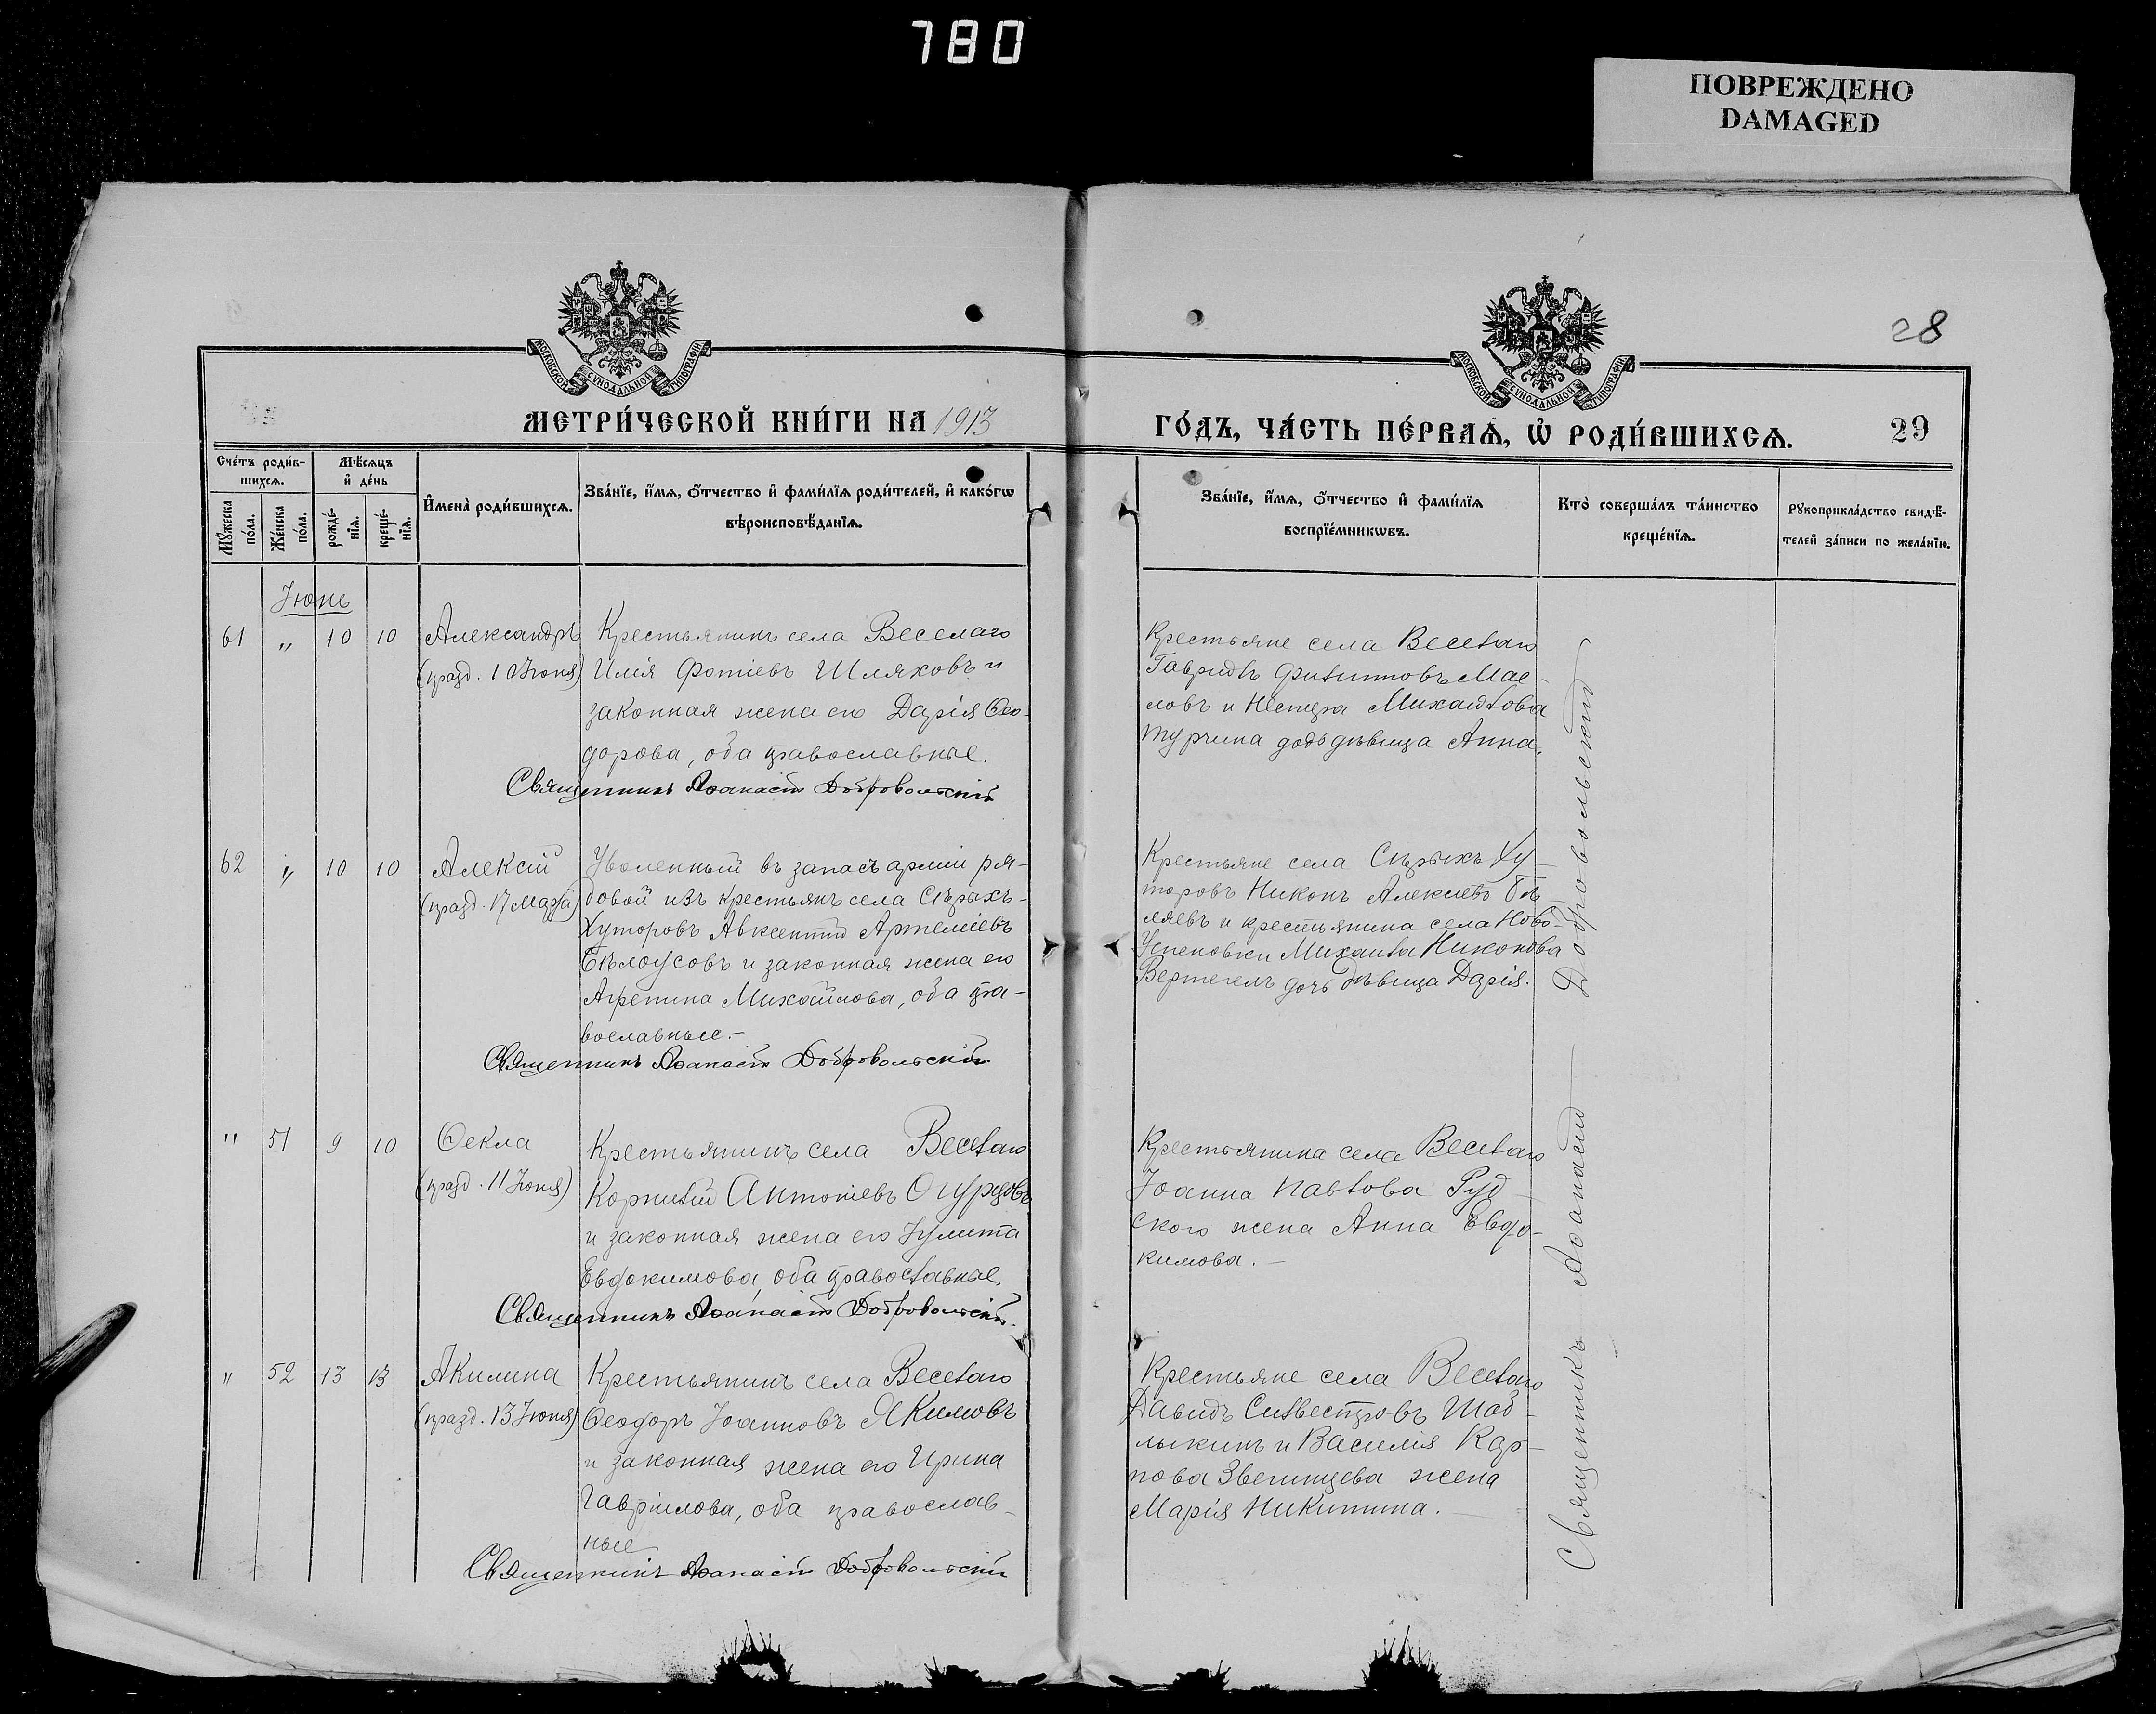 780
ПОВРЕЖДЕНО
DAMAGED
28
МОСКОВСКОЙ СѴНОДАЛЬНОЙ ТИПОГРАФІИ
МОСКОВСКОЙ СѴНОДАЛЬНОЙ ТИПОГРАФІИ
МЕТРИ́ЧЕСКОЙ КНИ́ГИ НА 1913
ГО́ДЪ, ЧА́СТЬ ПЕ́РВАѦ, Ѿ РОДИ́ВШИХСѦ.
29
Сче́тъ роди́в-
шихсѧ.
Мꙋжеска
по́ла.
Же́нска
по́ла.
Мѣ́сѧцъ
и҆ де́нь
рожде́-
нїѧ.
креще́-
нїѧ.
И҆мена̀ роди́вшихсѧ.
Зва́нїе, и҆́мѧ, ѻ҆́тчество и҆ фами́лїѧ роди́телей, и҆ како́гѡ
вѣроисповѣ́данїѧ.
Зва́нїе, и҆́мѧ, ѻ҆́тчество и҆ фами́лїѧ
воспрїе́мникѡвъ.
Кто̀ соверша́лъ та́инство
креще́нїѧ.
Рꙋкоприкла́дство свидѣ́-
телей за́писи по жела́нїю.
Іюнь
61 " 10 10
Александръ
(празд. 10 Іюня)
Крестьянинъ села Веселаго
Илія Фотіевъ Шляховъ и
законная жена его Дарія Ѳео-
дорова, оба православные.
Священникъ Аѳанасій Добровольскій
Крестьяне села Веселаго
Гавріилъ Филипповъ Мас-
ловъ и Нестера Михаилова
Турчина дочь дѣвица Анна.
62 " 10 10
Алексій
(празд. 17 Марта)
Уволенный въ запасъ арміи ря-
довой изъ крестьянъ села Сѣрыхъ-
Хуторовъ Авксентій Артеміевъ
Бѣлоусовъ и законная жена его
Агрепина Михайлова, оба пра-
вославные.-
Священникъ Аѳанасій Добровольскій
Крестьяне села Сѣрыхъ Ху-
торовъ Никонъ Алексіевъ Бѣ
ляевъ и крестьянина села Ново-
Успеновки Михаила Никонова
Вертегелъ дочь дѣвица Дарія.
" 51 9 10
Ѳекла
(празд. 11 Іюня)
Крестьянинъ села Веселаго
Корнилій Антоніевъ Огурцовъ
и законная жена его Іулита
Евдокимова, оба православные
Священникъ Аѳанасій Добровольскій.
Крестьянина села Веселаго
Іоанна Павлова Руд-
ского жена Анна Евдо-
кимова.-
" 52 13 13
Акилина
(празд. 13 Іюня)
Крестьянинъ села Веселаго
Ѳеодоръ Іоанновъ Якимовъ
и законная жена его Ирина
Гавріилова, оба православ-
ные
Священникъ Аѳанасій Добровольскій
Крестьяне села Веселаго
Давидъ Силвестровъ Шаб-
лыкинъ и Василія Кар-
пова Звегинцева жена
Марія Никитина.
Священникъ Аѳанасій Добровольскій